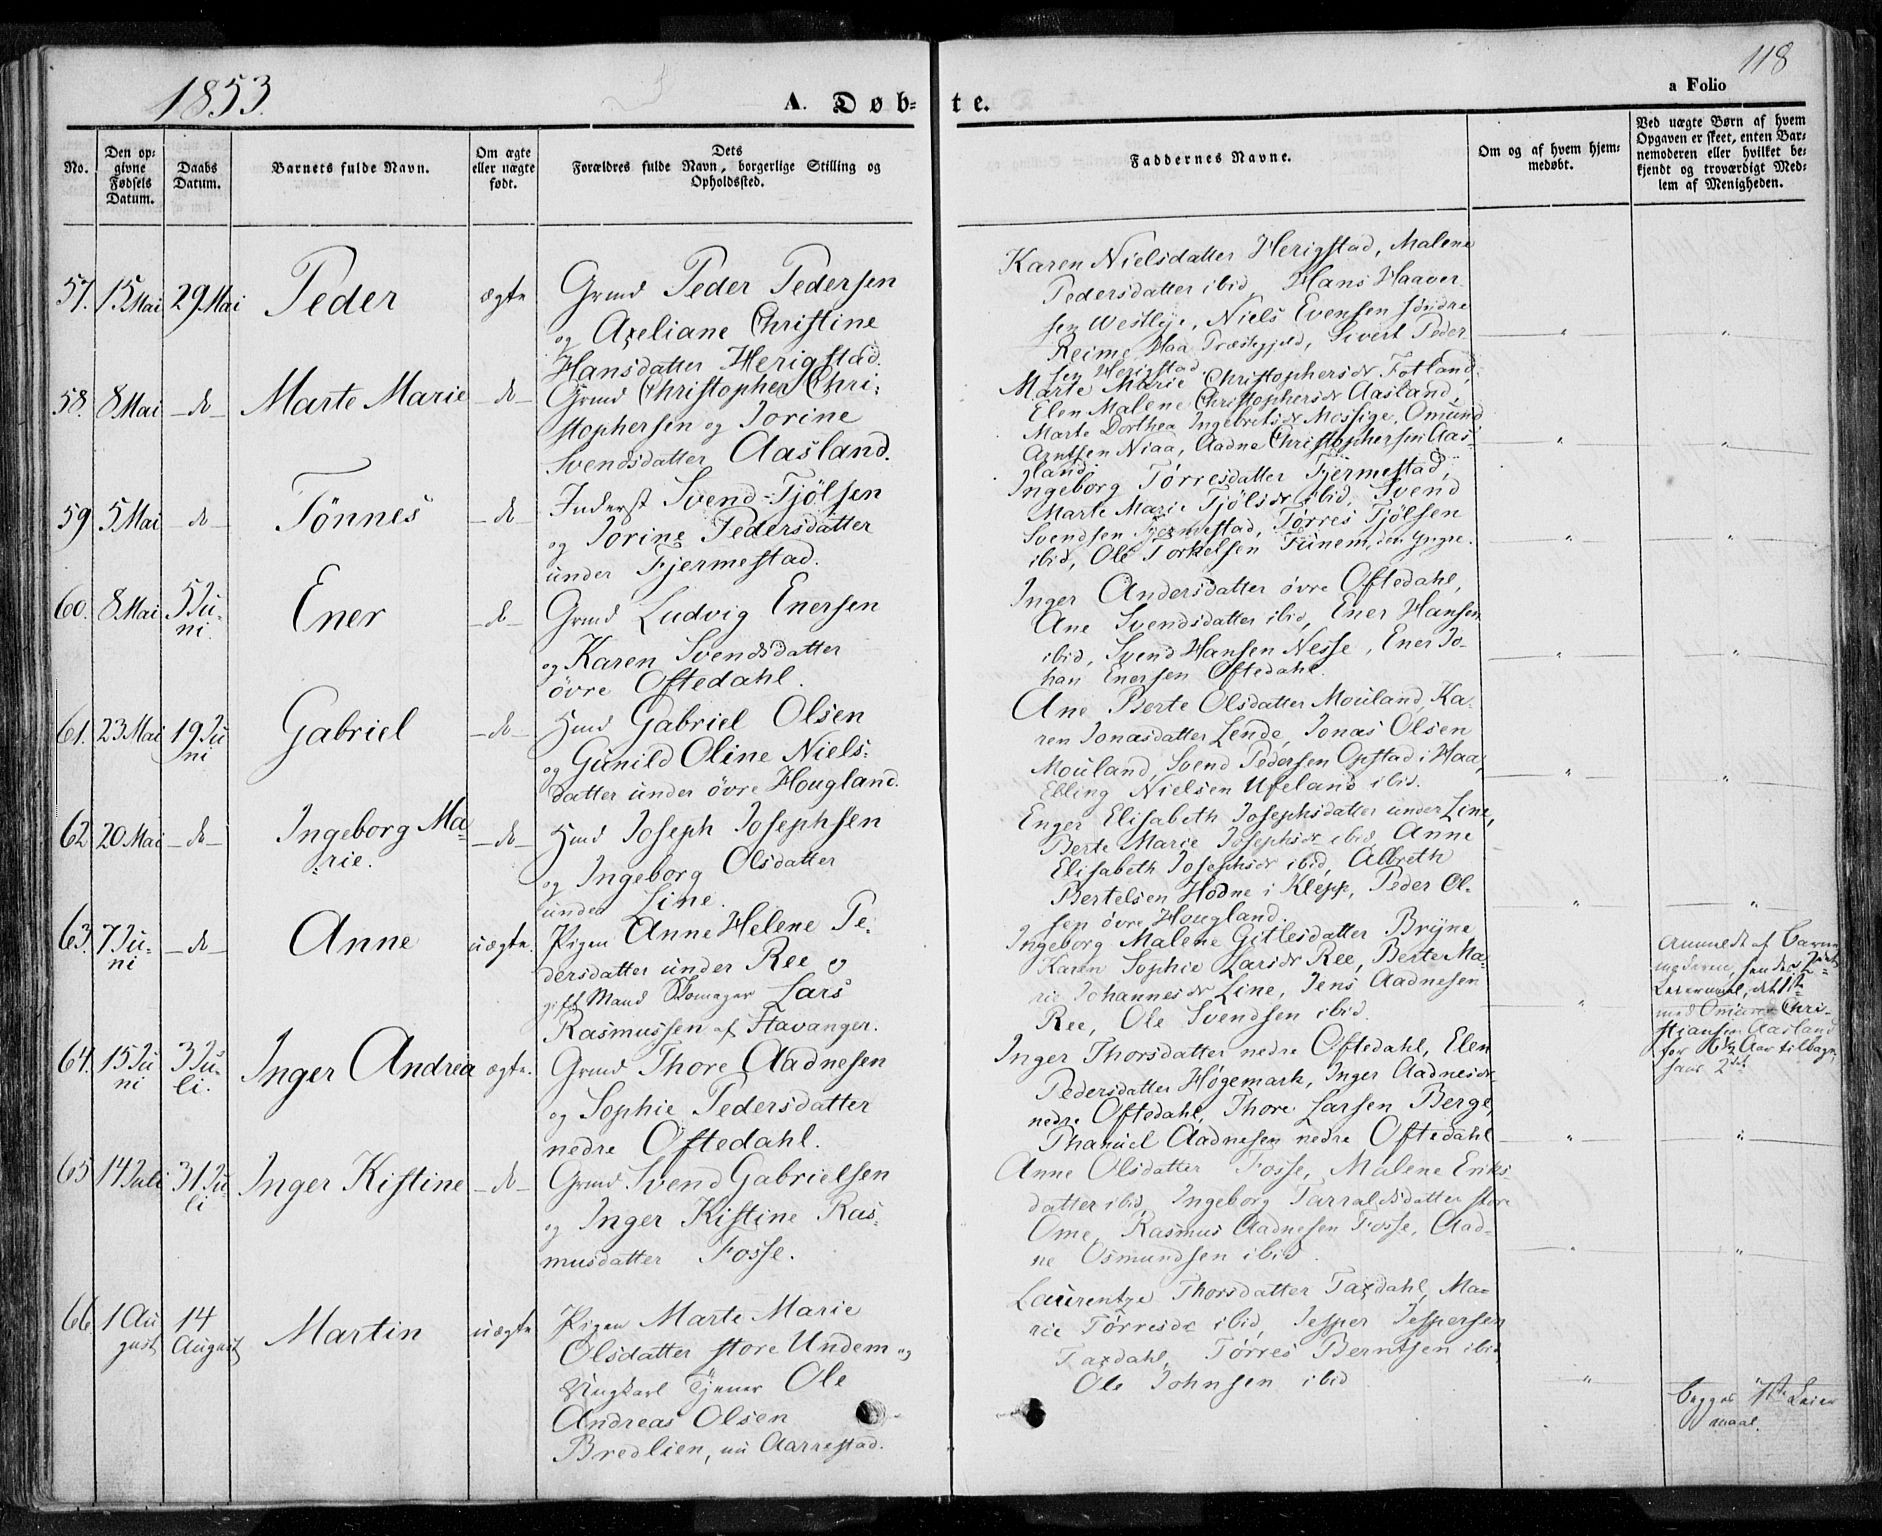 1853.
A. Døb- te.
118
a Folio
No.
Den op-
givne
Fødsels
Datum.
Daabs
Datum.
Barnets fulde Navn.
Om ægte
eller uægte
født.
Dets
Forældres fulde Navn, borgerlige Stilling og
Opholdssted.
Faddernes Navne.
Om og af hvem hjem-
medøbt.
Ved uægte Børn af hvem
Opgaven er skeet, enten Bar-
nemoderen eller hvilket be-
kjendt og troværdigt Med-
lem af Menigheden.
57. 15 Mai 29 Mai Peder ægte
Grmd Peder Pedersen
og Axeliane Christine
Hansdatter Herigstad.
Karen Nielsdatter Herigstad, Malene
Pedersdatter ibid, Hans Haaver
sen Westlye, Niels Evensen søndre
Reime Haa Præstegjeld, Sivert Peder
sen Herigstad.
58. 8 Mai - do - Marte Marie - do -
Grmd Christopher Chri-
stophersen og Jorine
Svendsdatter Aasland.
Marte Marie Christophersdr Fotland,
Elen Malene Christophersdr Aasland,
Marte Dorthea Ingebretsdr Mossige, Omund
Arntsen Niaa, Aadne Christophersen Aas-
land.
59 5 Mai - do - Tönnes - do -
Inderst Svend Tjölsen
og Jorine Pedersdatter
under Fjermestad.
Ingeborg Tørresdatter Fjermestad,
Marte Marie Tjölsdr ibid, Svend
Svendsen Fjermestad, Tørres Tjölsen
ibid, Ole Torkelsen Tunem, den yngre.
60. 8 Mai 5 Ju-
ni. Ener - do -
Grmd Ludvig Enersen
og Karen Svendsdatter
övre Oftedahl.
Inger Andersdatter övre Oftedahl,
Ane Svendsdatter ibid, Ener Hansen
ibid, Svend Hansen Nesse, Ener Jo-
han Enersen Oftedahl.
61. 23 Mai 19 Ju
ni Gabriel - do -
Hmd Gabriel Olsen
og Gunild Oline Niels-
datter under övre Hougland.
Ane Berte Olsdatter Mouland, Ka-
ren Jonasdatter Lende, Jonas Olsen
Mouland, Svend Pedersen Opstad i Haa,
Elling Nielsen Ufeland ibid.
62. 20 Mai - do - Ingeborg Ma-
rie. - do -
Hmd Joseph Josephsen
og Ingeborg Olsdatter
under Line.
Enger Elisabeth Josephsdatter under Line,
Berte Marie Josephsdr ibid, Anne
Elisabeth Josephsdr ibid, Albreth
Bertelsen Hodne i Klepp, Peder Ol-
sen övre Hougland.
63. 7 Ju-
ni - do - Anne uægte.
Pigen Anne Helene Pe-
dersdatter under Ree og
gift Mand Skomager Lars
Rasmussen af Stavanger.
Ingeborg Malene Gitlesdatter Bryne
Karen Sophie Larsdr Ree, Berte Ma-
rie Johannesdr Line, Jens Aadnesen
Ree, Ole Svendsen ibid.
Anmeldt af Barne
moderen, hendes 2det
Leiermaal, det 1ste
med Omund Chri-
stiansen Aasland
for 6½ Aar tilbage,
hans 2det
64. 15 Ju
ni 3 Ju-
li. Inger Andrea ægte.
Grmd Thore Aadnesen
og Sophie Pedersdatter
nedre Oftedahl.
Inger Thorsdatter nedre Oftedahl, Elen
Pedersdatter Høgemark, Inger Aadnesdr
nedre Oftedahl, Thore Larsen Berge,
Phanuel Aadnesen nedre Oftedahl
65 14 Juli 31 Ju-
li Inger Kistine - do -
Grmd Svend Gabrielsen
og Inger Kistine Ras-
musdatter Fosse.
Anne Olsdatter Fosse, Malene Eriks
datter ibid, Ingeborg Tarraldsdatter store
Ome, Rasmus Aadnesen Fosse, Aad-
ne Osmundsen ibid.
66 1 Au
gust 14
August Martin uægte
Pigen Marte Marie
Olsdatter store Undem og
Ungkarl Tjener Ole
Andreas Olsen
Bredlien, nu Aarrestad.
Laurentze Thorsdatter Taxdahl, Ma-
rie Tørresdr ibid, Jesper Jespersen
Taxdahl, Tørres Berntsen ibid
Ole Johnsen ibid
begges 1ste Leier
maal.